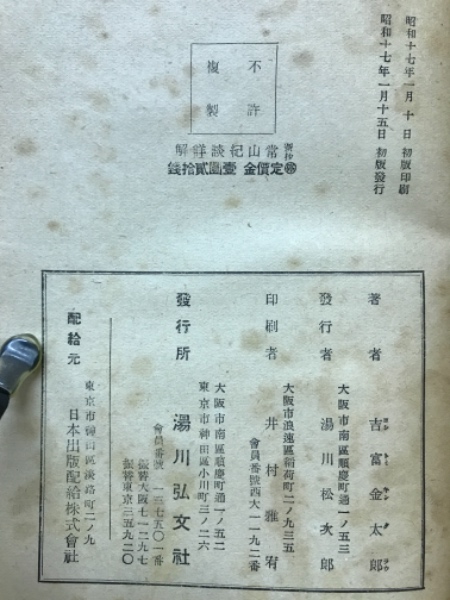 昭和十七年一月十日 初版印刷
昭和十七年一月十五日 初版發行
不許
複製
新抄 常山紀談詳解
㊕定價金 壹圓貳拾錢
著者 吉富金太郎
大阪市南區順慶町通一ノ五三
發行者 湯川松次郎
大阪市浪速區稲荷町二ノ九三五
印刷者 井村雅宥
會員番號西大一一九二番
大阪市南區順慶町通一ノ五二
東京市神田區小川町三ノ二六
發行所 湯川弘文社
會員番號 一三七五〇一番
振替大阪七一二九七
振替東京三五九二〇
東京市神田區淡路町二ノ九
配給元 日本出版配給株式會社